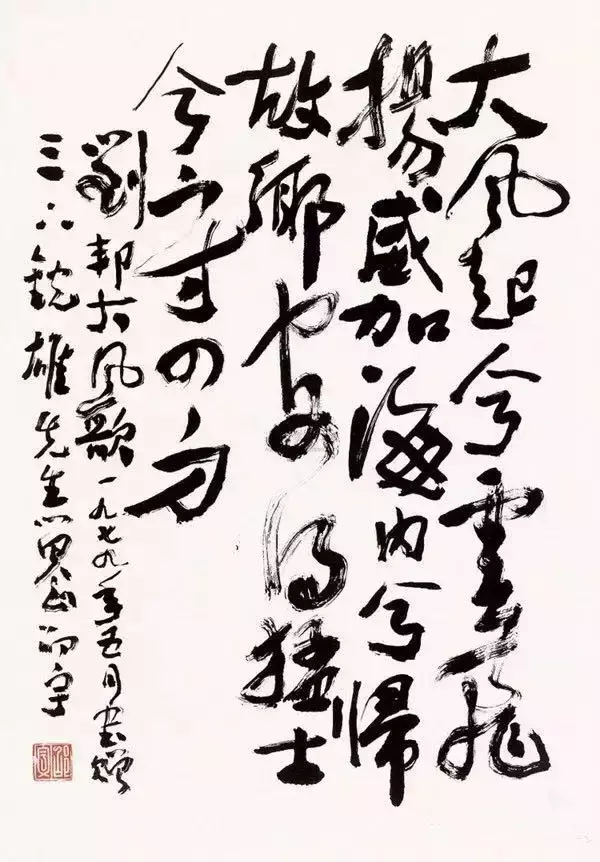 大風起兮雲飛
揚威加海内兮歸
故鄉安得猛士
兮守四方
劉邦大風歌一九七九年五月書贈
三六雄先生邵宇
邵宇